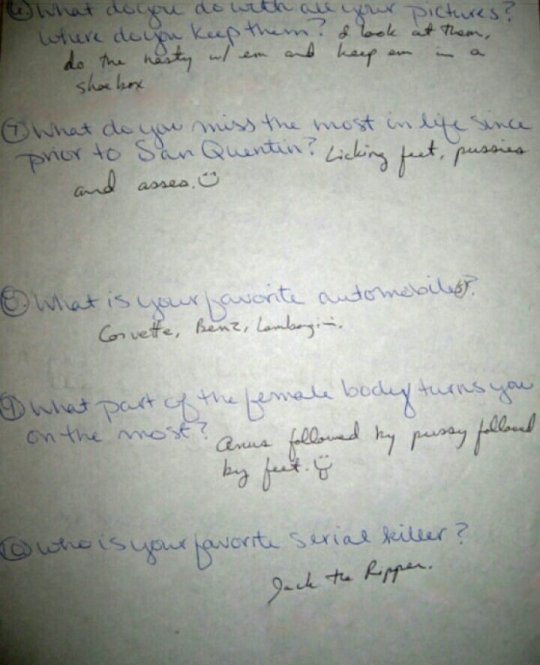 ⑥ What do you do with all your pictures?
Where do you keep them? I look at them,
do the nasty w/ em and keep em in a
shoe box
⑦ What do you miss the most in life since
prior to San Quentin? Licking feet, pussies
and asses. ☺
⑧ What is your favorite automobile(s)?
Corvette, Benz, Lamborgini.
⑨ What part of the female body turns you
on the most? Anus followed by pussy followed
by feet. ☺
⑩ Who is your favorite serial killer?
Jack the Ripper.